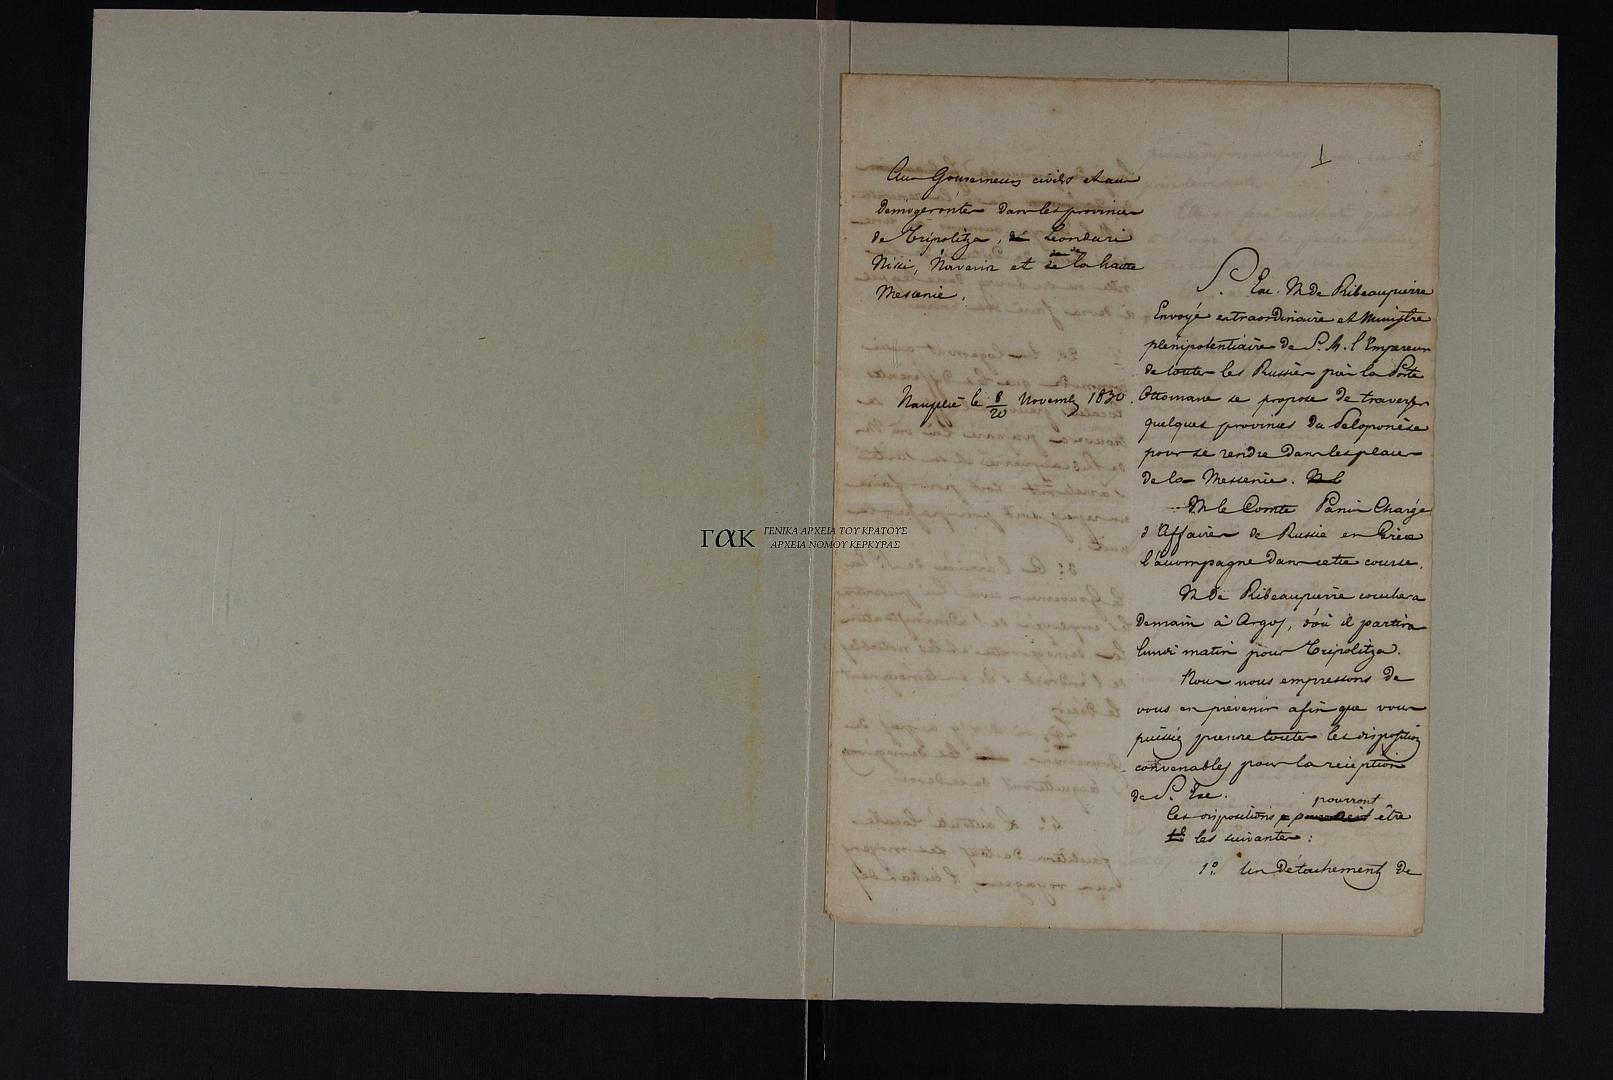 1
Aux Gouverneurs civils et aux
Demogerontes dans les provinces
de Tripolitza, de Leondari
Nissi, Navarin et de la haute
Messenie.
Nauplie le 8/20 Novembre 1830.
S. Exc. M de Ribeaupierre
Envoyé extraordinaire et Ministre
plénipotentiaire de S. M. l'Empereur
de toutes les Russies près la Porte
Ottomane se propose de traverser
quelques provinces du Peloponèse
pour se rendre dans les places
de la Messenie.
M le Comte Panin Chargé
d'Affaires de Russie en Grèce
l'accompagne dans cette course.
M de Ribeaupierre couchera
demain à Argos, d'où il partira
lundi matin pour Tripolitza.
Nous nous empressons de
vous en prévenir afin que vous
puissiez prendre toutes les dispositions
convenables pour la réception
de S. Exc.
pourront
Les dispositions être
les suivantes :
1° Un Détachement de
ΓαΚ ΓΕΝΙΚΑ ΑΡΧΕΙΑ ΤΟΥ ΚΡΑΤΟΥΣ
ΑΡΧΕΙΑ ΝΟΜΟΥ ΚΕΡΚΥΡΑΣ